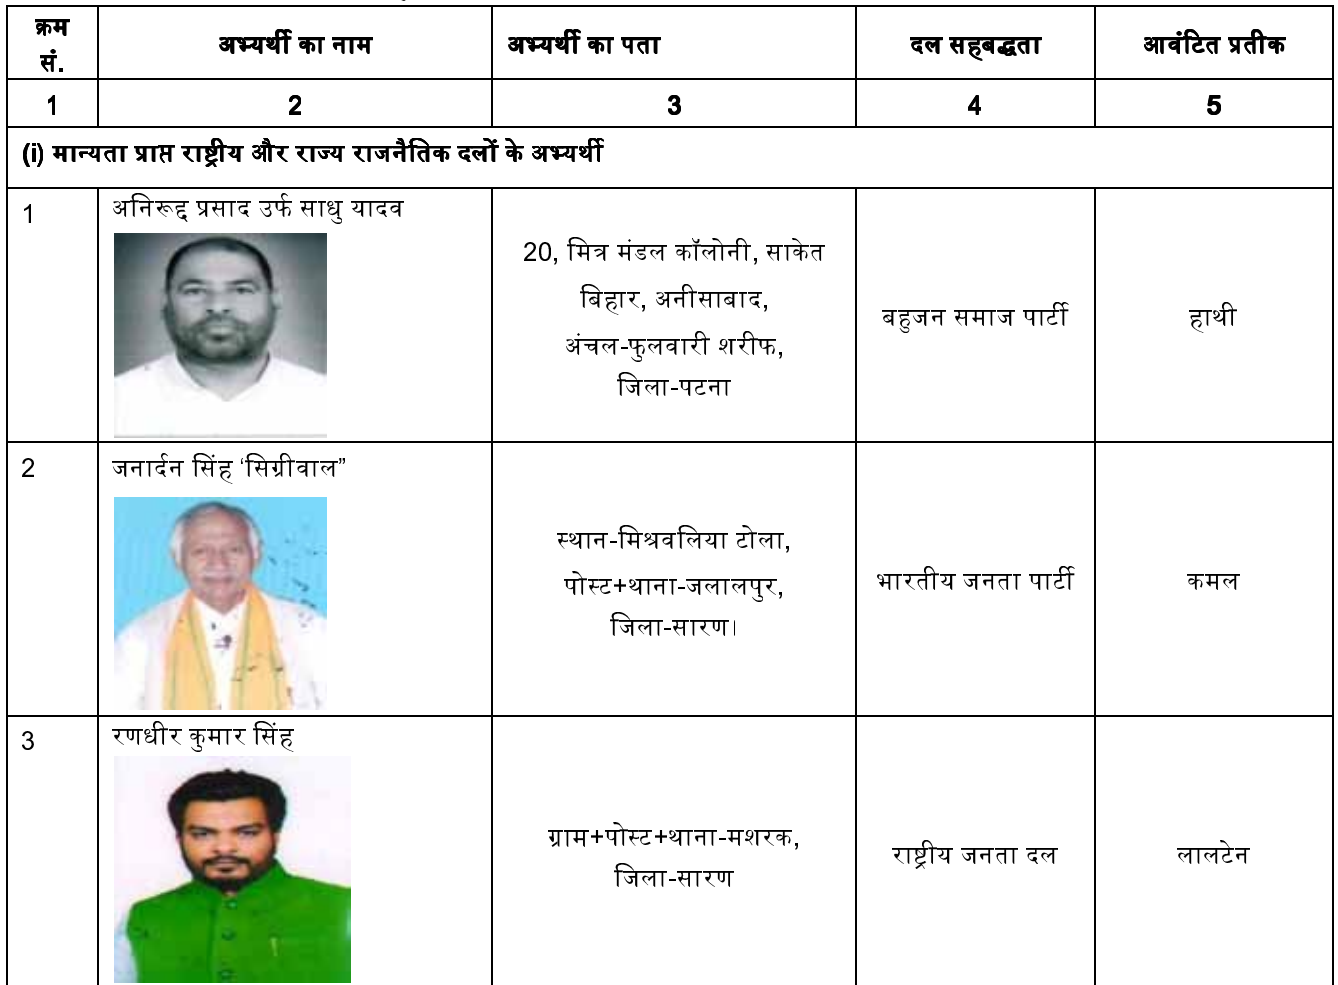 क्रम सं. अभ्यर्थी का नाम अभ्यर्थी का पता दल सहबद्धता आवंटित प्रतीक
1 2 3 4 5
(i) मान्यता प्राप्त राष्ट्रीय और राज्य राजनैतिक दलों के अभ्यर्थी
1
अनिरूद्द प्रसाद उर्फ साधु यादव
20, मित्र मंडल कॉलोनी, साकेत
बिहार, अनीसाबाद,
अंचल-फुलवारी शरीफ,
जिला-पटना
बहुजन समाज पार्टी
हाथी
2
जनार्दन सिंह ‘सिग्रीवाल”
स्थान-मिश्रवलिया टोला,
पोस्ट+थाना-जलालपुर,
जिला-सारण।
भारतीय जनता पार्टी
कमल
3
रणधीर कुमार सिंह
ग्राम+पोस्ट+थाना-मशरक,
जिला-सारण
राष्ट्रीय जनता दल
लालटेन